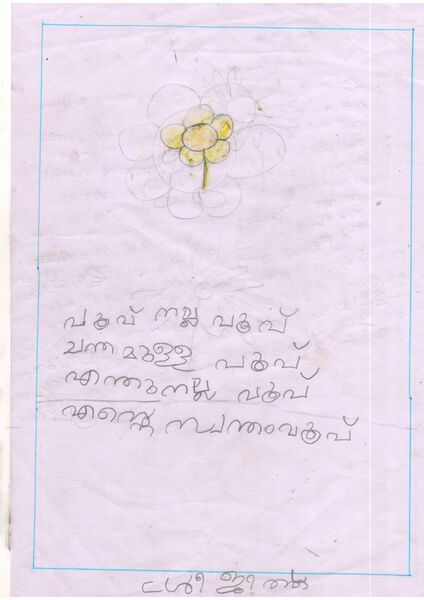 പൂവ് നല്ല പൂവ്
ചന്തമുള്ള പൂവ്
എന്തുനല്ല പൂവ്
എന്റെ സ്വന്തംപൂവ്